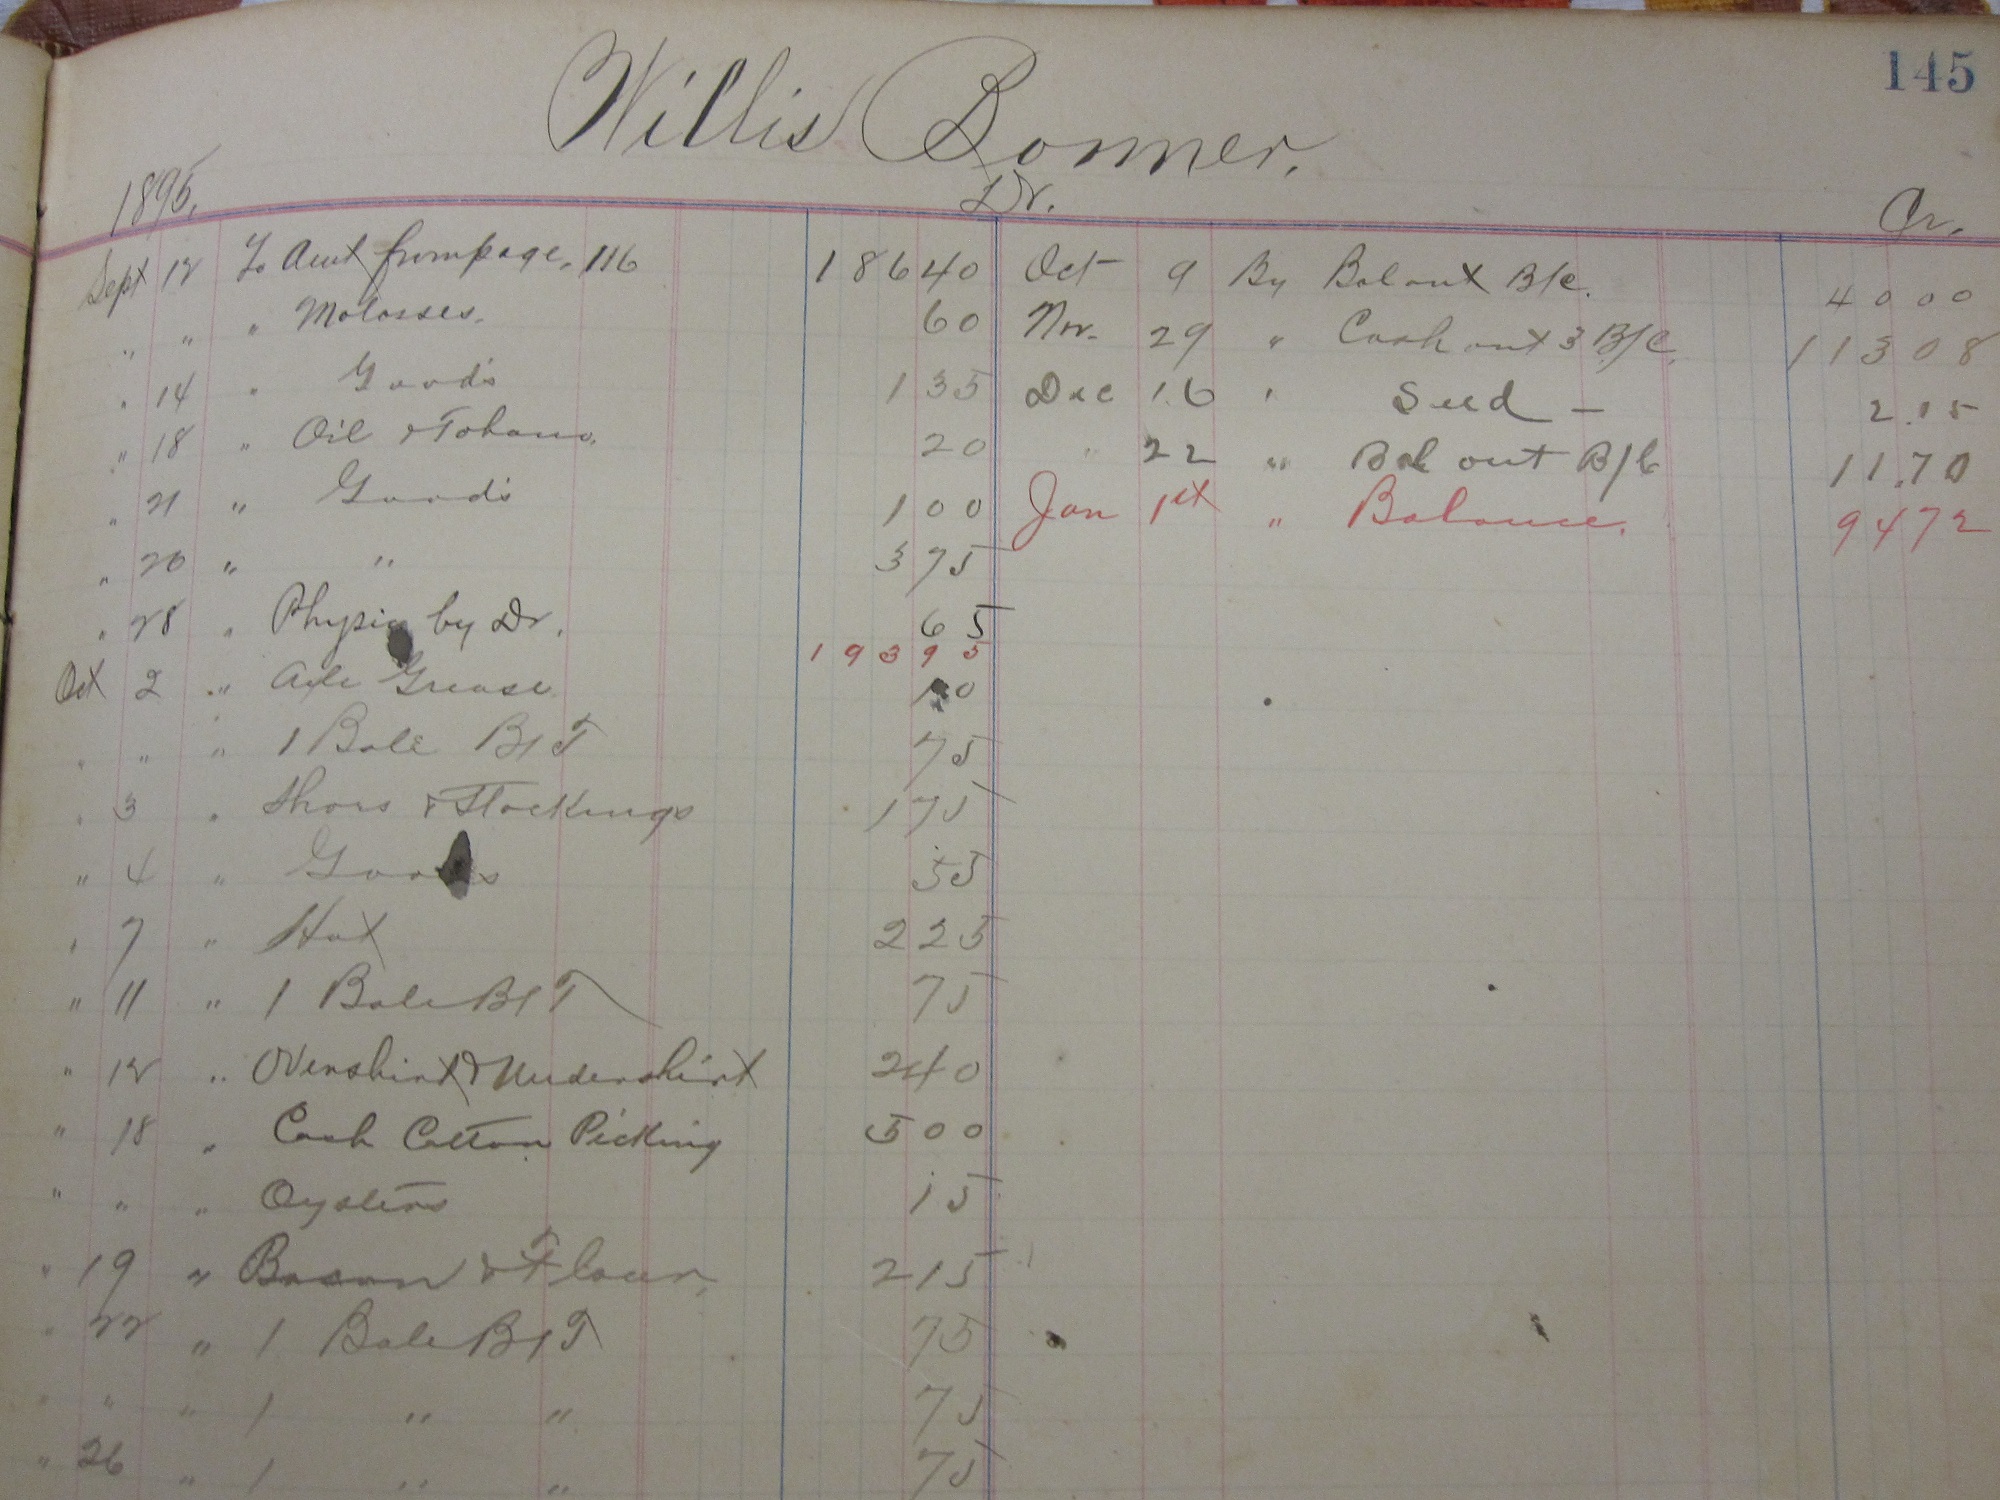 145
Willis Bonner.
1895.
Dr.
Cr.
Sept 12 To Amt from page. 116 186 40
" " " Molasses. 60
" 14 " Goods 1 35
" 18 " Oil & Tobacco. 20
" 21 " Goods 1 00
" 26 " " 3 75
" 28 " Physic by Dr. 65
193 95
Oct 2 " Axle Grease 10
" " " 1 Bale B&T 75
" 3 " Shoes & Stockings 1 75
" 4 " Goods 55
" 7 " Hat 2 25
" 11 " 1 Bale B&T 75
" 12 " Overshirt & Undershirt 2 40
" 18 " Cash Cotton Picking 5 00
" " " Oysters 15
" 19 " Bacon & Flour, 2 15
" 22 " 1 Bale B&T 75
" " " 1 " " 75
" 26 " 1 " " 75
Oct 9 By Bal ont B/C. 40 00
Nov. 29 " Cash ont 3 B/C. 113 08
Dec 16 " Seed — 2.15
" 22 " Bal ont B/C 11.70
Jan 1st " Balance. 94 72